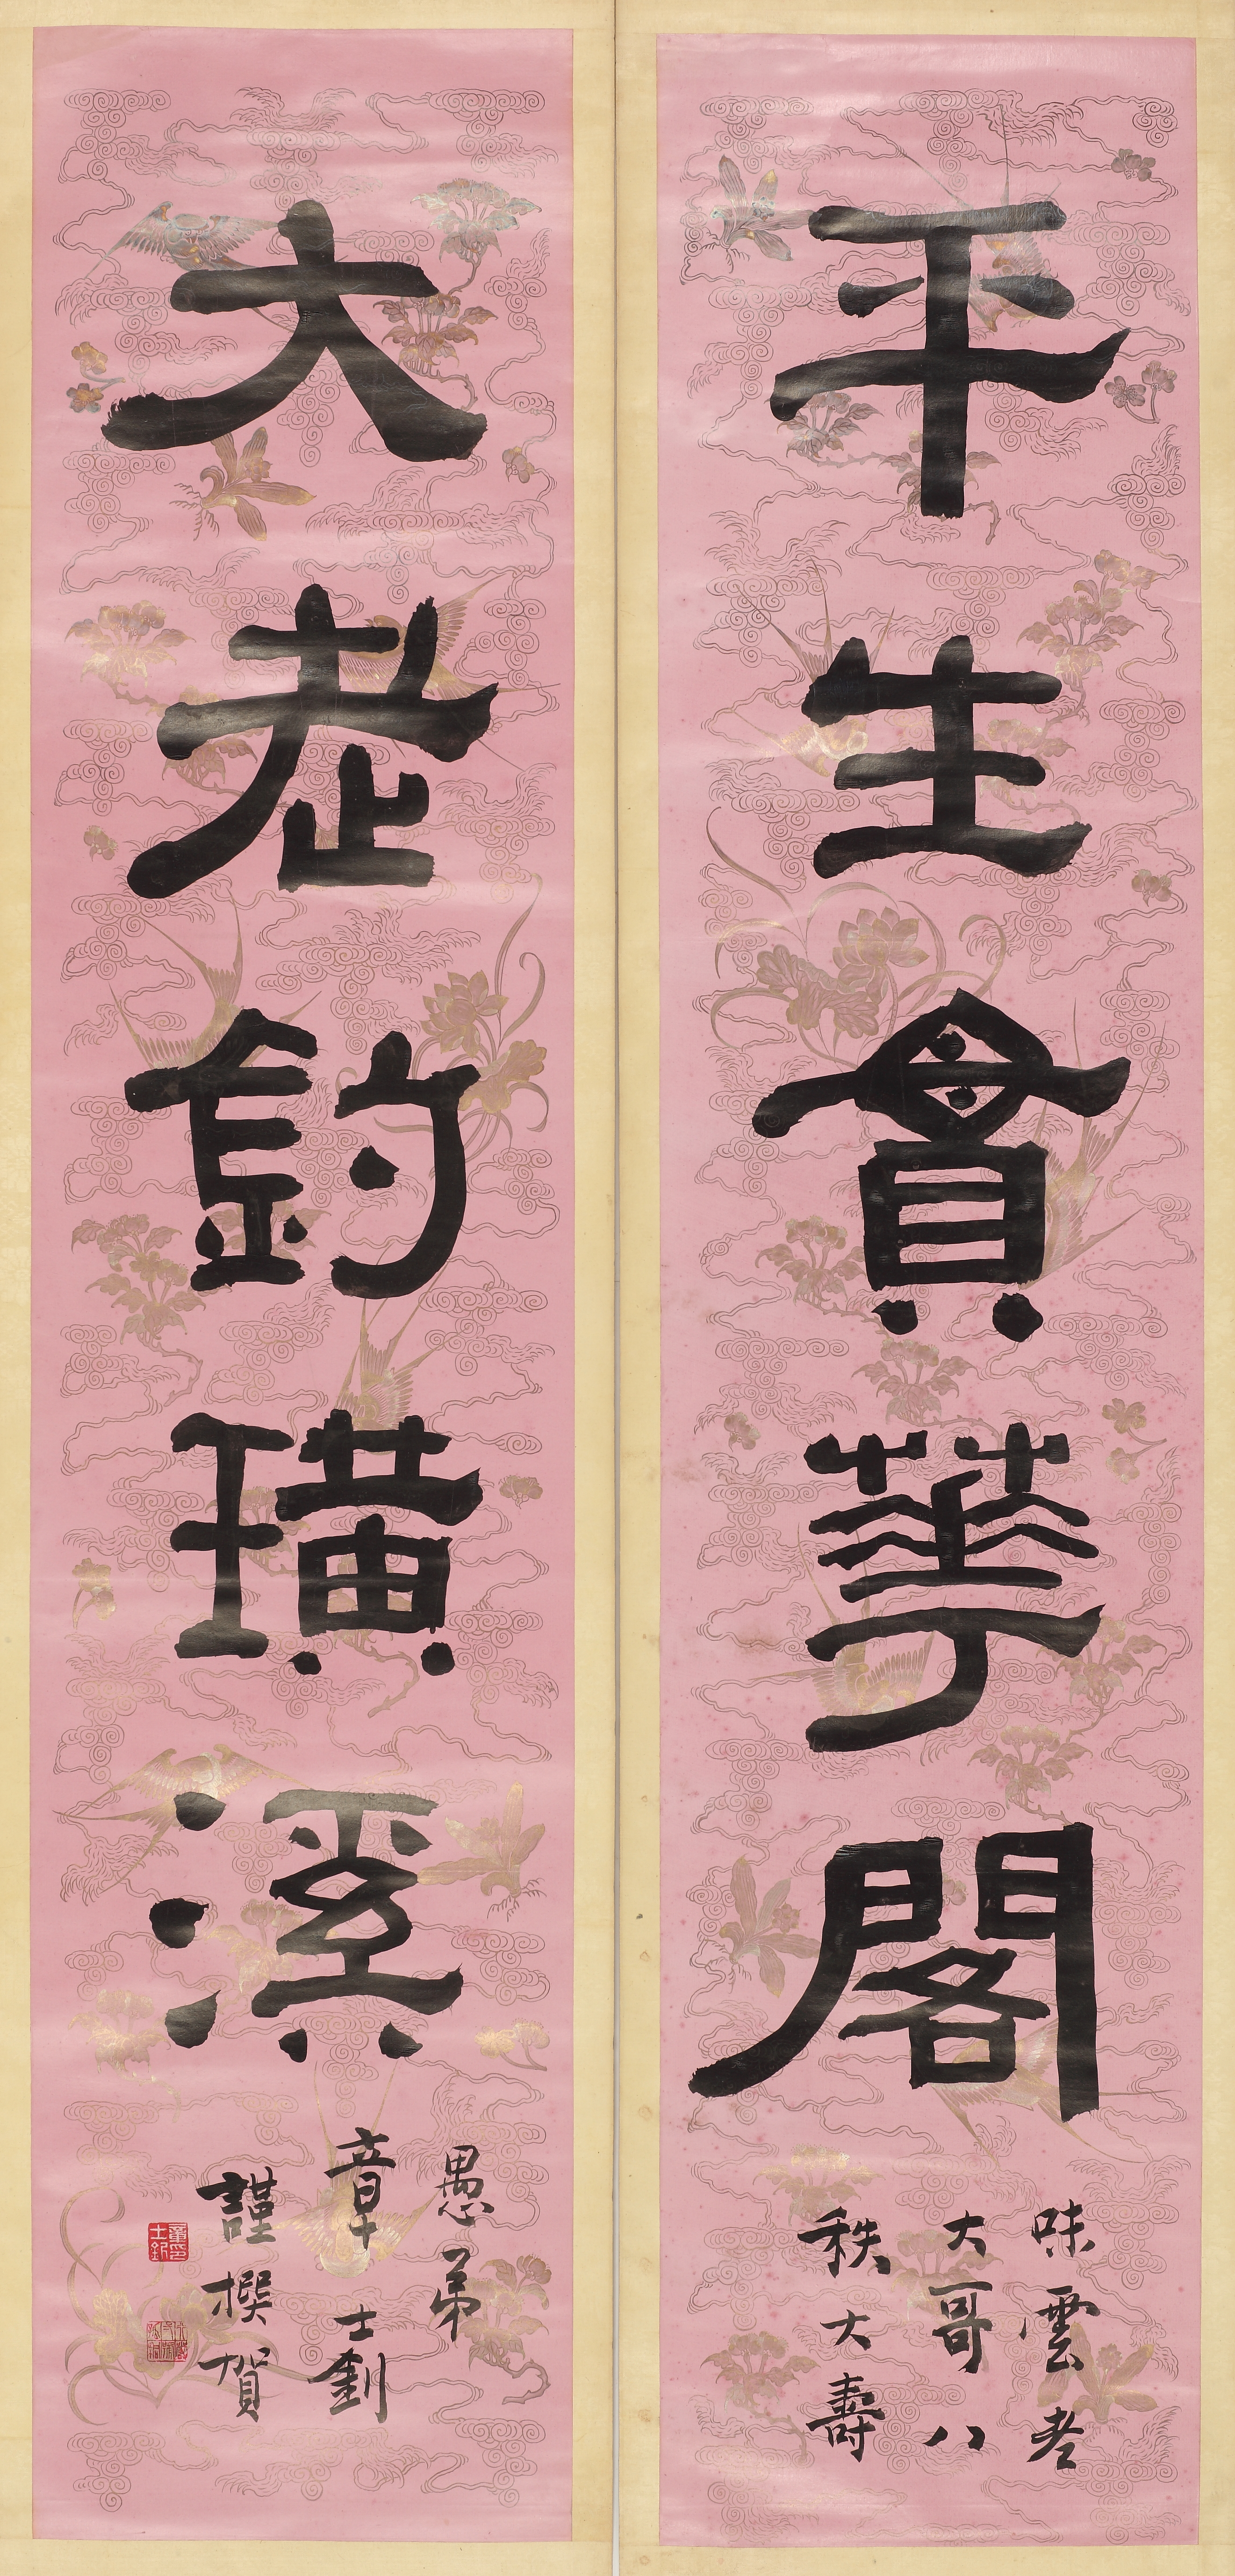 平生貫華閣
味雲老
大哥八
秩大壽
大老釣璜溪
愚弟
章士釗
謹撰賀
章印士釗